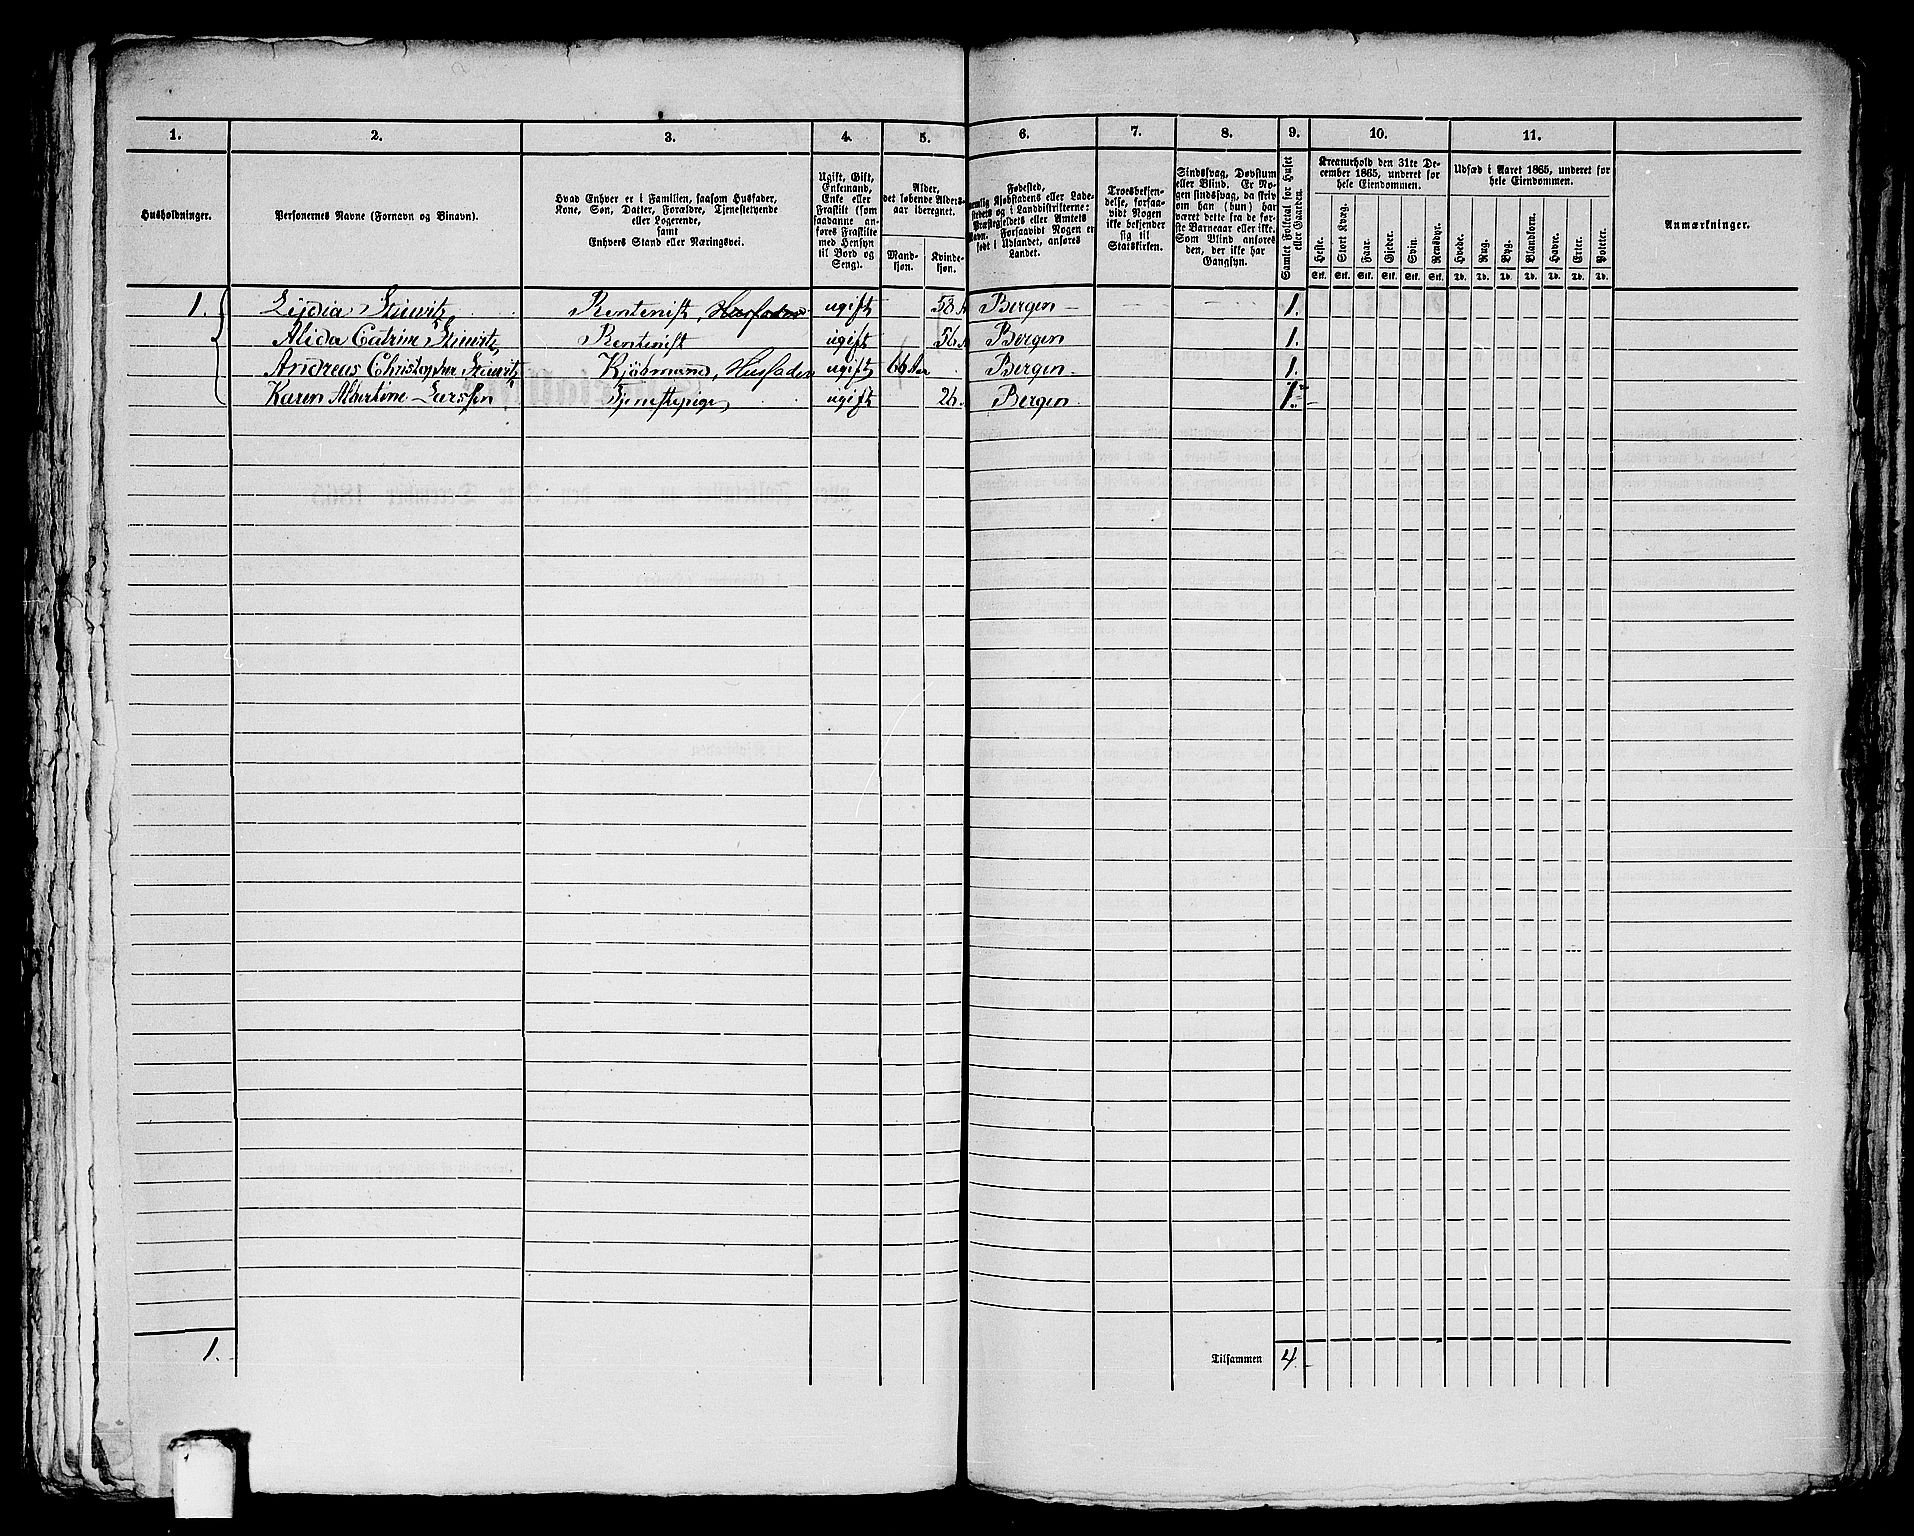 1. 2. 3. 4. 5. 6. 7. 8. 9. 10. 11.
Husholdninger.
Personernes Navne (Fornavn og Binavn).
Hvad Enhver er i Familien, saasom Husfader,
Kone, Søn, Datter, Forældre, Tjenestetyende
eller Logerende,
samt
Enhvers Stand eller Næringsvei.
Ugift, Gift,
Enkemand,
Enke eller
Fraskilt (som
saadanne an-
føres Fraskilte
med Hensyn
til Bord og
Seng).
Alder,
det løbende Alders-
aar iberegnet.
Mand-
kjøn.
Kvinde-
kjøn.
Fødested,
nemlig Kjøbstadens eller Lade-
stedets og i Landdistrikterne:
Præstegjeldets eller Amtets
Navn. Forsaavidt Nogen er
født i Udlandet, anføres
Landet.
Troesbekjen-
delse, forsaa-
vidt Nogen
ikke bekjender
sig til
Statskirken.
Sindssvag, Døvstum
eller Blind. Er No-
gen sindssvag, da skriv
om han (hun) har
været dette fra de før-
ste Barneaar eller ikke.
Som Blind anføres
den, der ikke har
Gangsyn.
Samlet Folketal for Huset
eller Gaarden.
Kreaturhold den 31te De-
cember 1865, underet for
hele Eiendommen.
Heste. Stort Kvæg. Faar. Gjeder. Svin. Rensdyr.
Stk. Stk. Stk. Stk. Stk. Stk.
Udsæd i Aaret 1865, underet for
hele Eiendommen.
Hvede. Rug. Byg. Blandkorn. Havre. Erter. Poteter.
Td. Td. Td. Td. Td. Td. Td.
Anmærkninger.
1. Lydia Steiwitz Rentenist, Husfader ugift 58 A Bergen 1.
Alida Catrine Steiwitz, Rentenist ugift 56 A Bergen 1.
Andreas Christopher Steiwitz Kjøbmand, Husfader ugift 66 Aar Bergen 1.
Karen Albertine Larssen Tjenestepige ugift 26. Bergen 1.
1. Tilsammen 4.